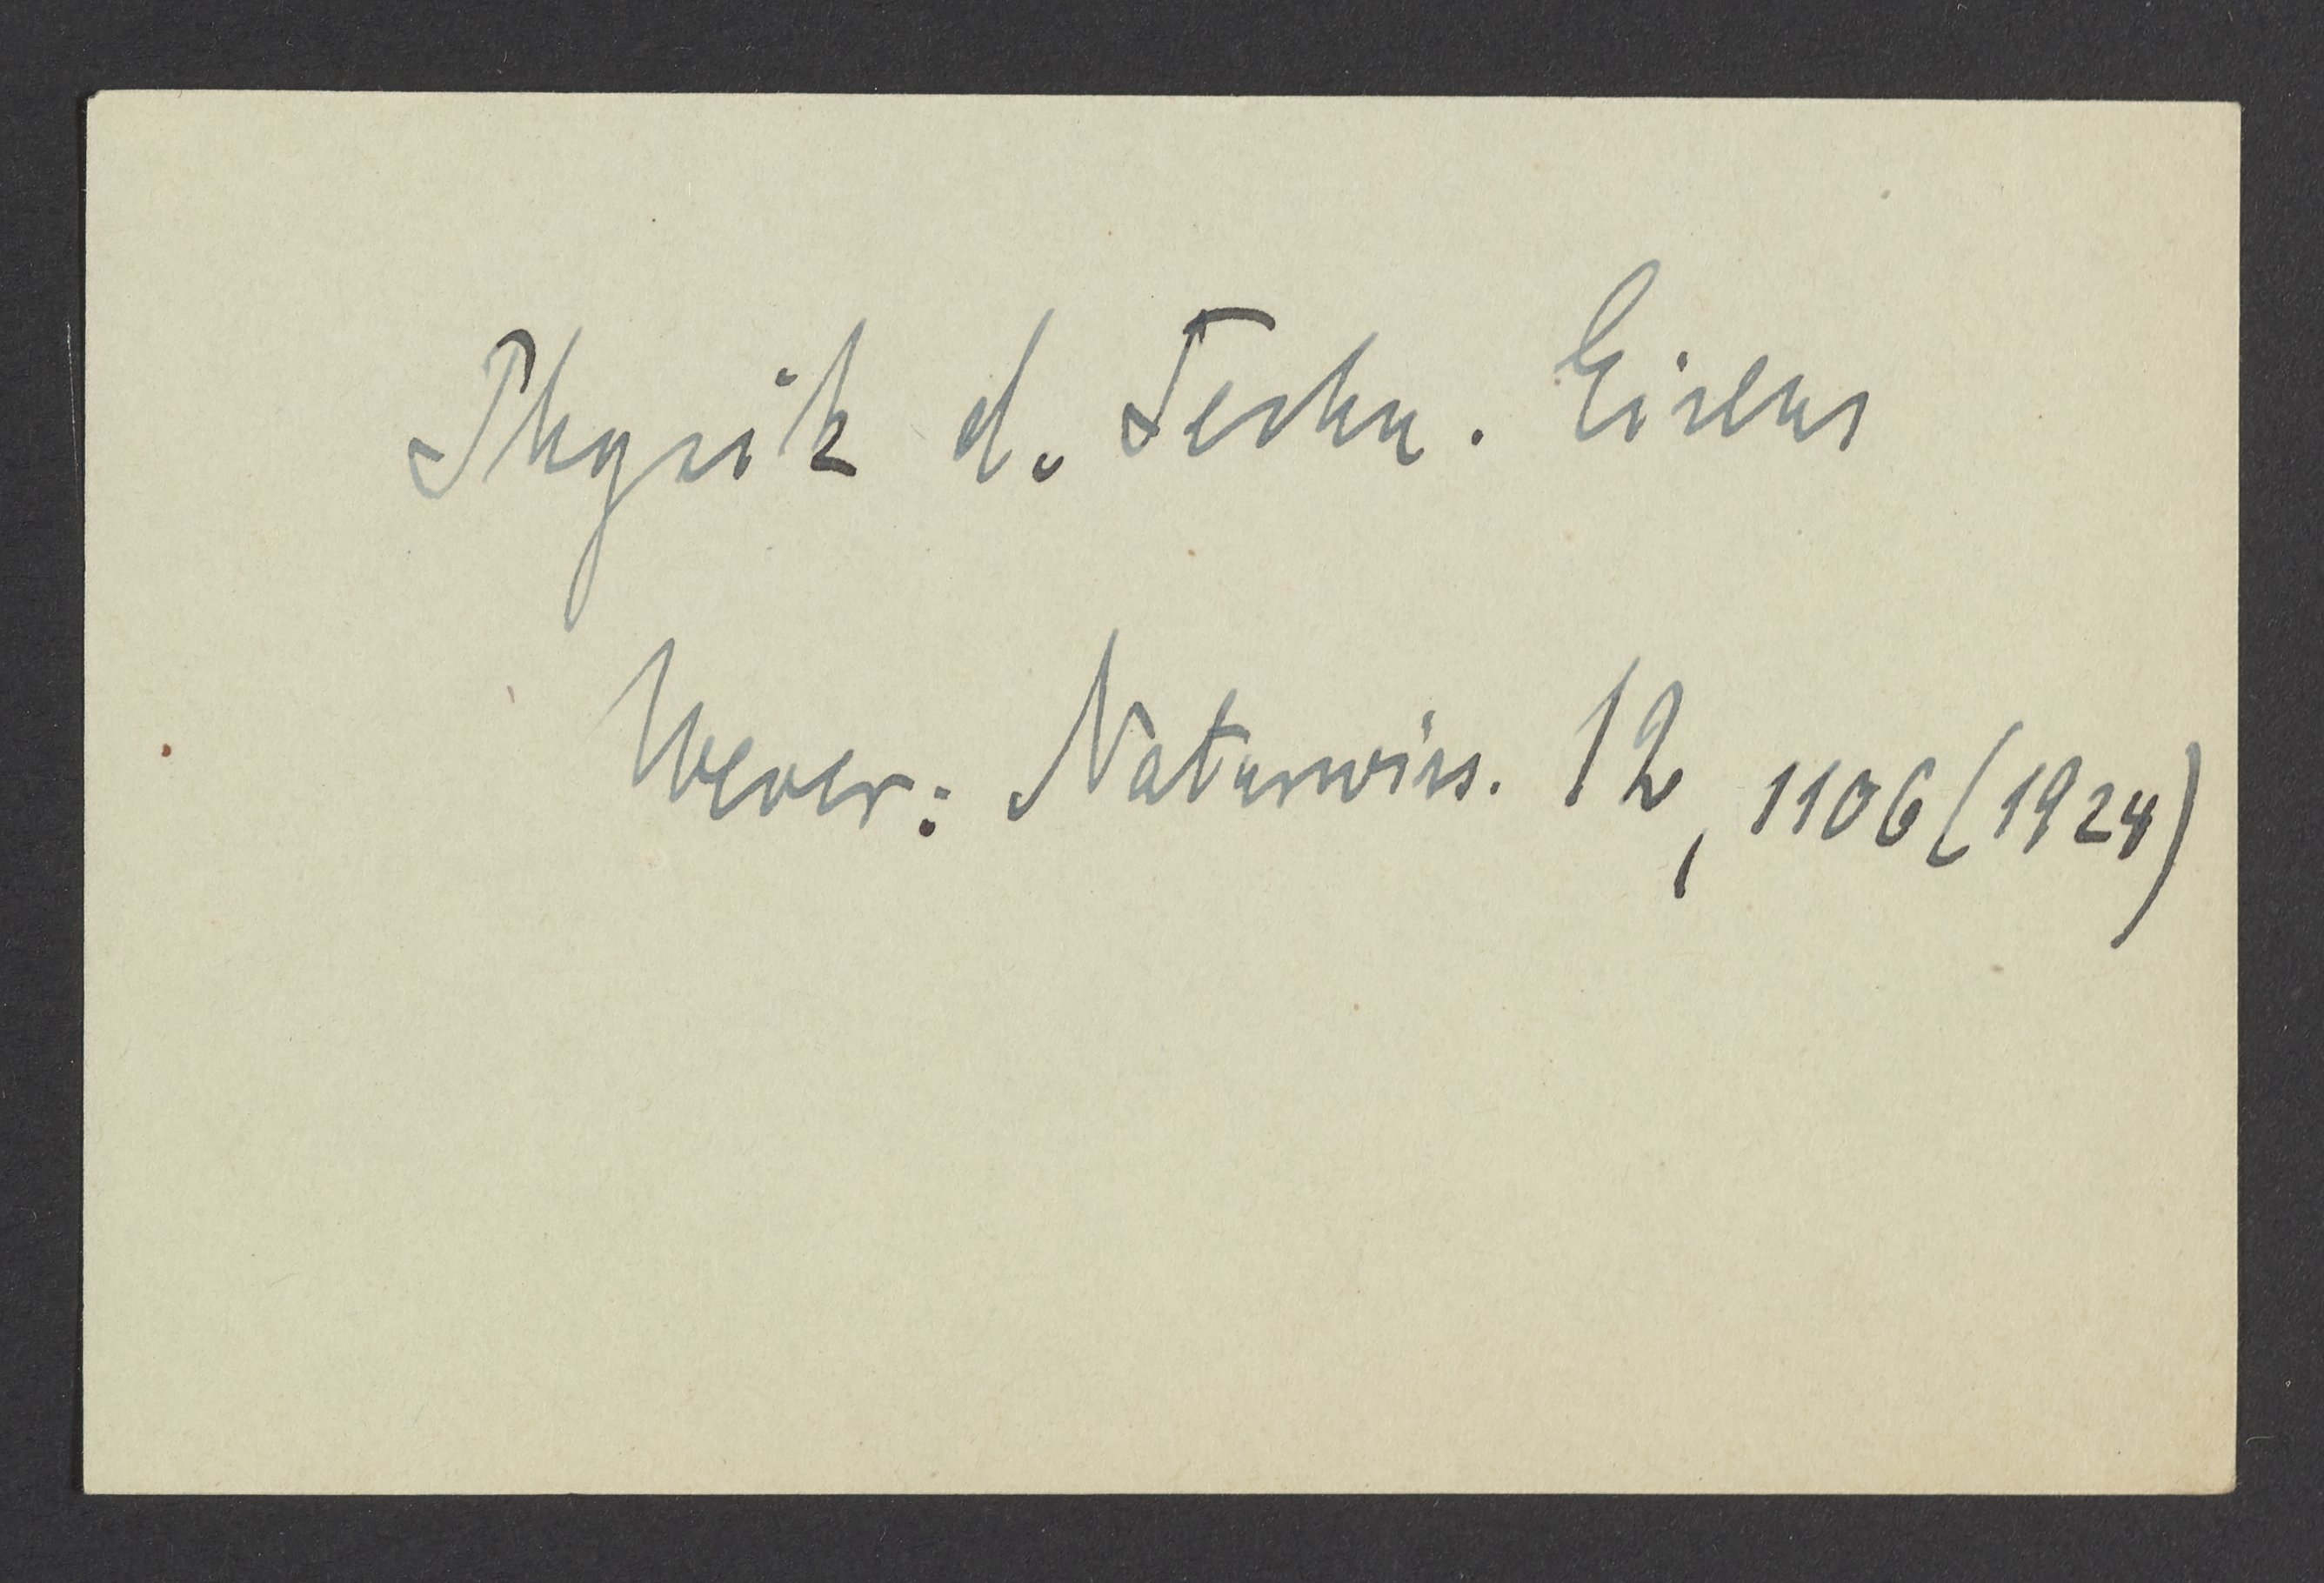 Physik d. Techn. Eisens
Wever: Naturwiss. 12, 1106 (1924)